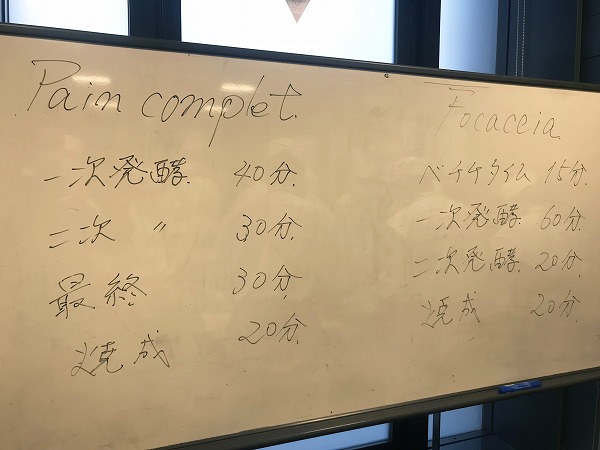 Pain complet.
一次発酵 40分.
二次 〃 30分.
最終 30分.
焼成 20分.
Focaceia
ベチケタイム 15分.
一次発酵 60分.
二次発酵. 20分.
焼成 20分.